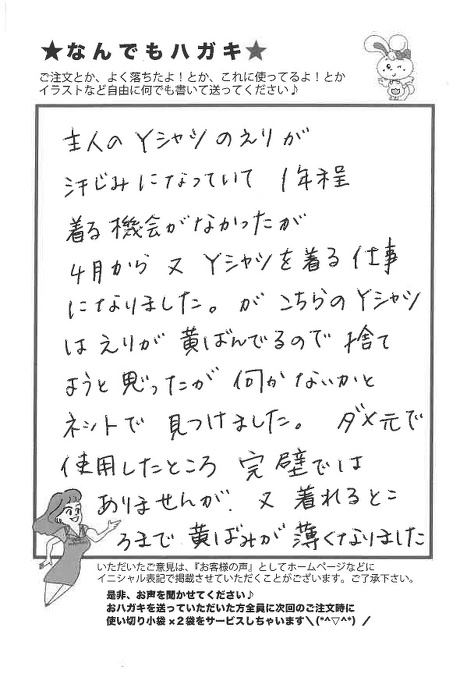 ★なんでもハガキ★
ご注文とか、よく落ちたよ！とか、これに使ってるよ！とか
イラストなど自由に何でも書いて送ってください♪
主人の Yシャツ のえりが
汗じみになっていて 1年程
着る機会がなかったが
4月から 又 Yシャツを着る仕事
になりました。が こちらのYシャツ
は えりが 黄ばんでるので 捨て
ようと思ったが 何かないかと
ネットで 見つけました。 ダメ元で
使用したところ 完璧では
ありませんが、又 着れるとこ
ろまで 黄ばみが 薄くなりました
いただいたご意見は、『お客様の声』としてホームページなどに
イニシャル表記で掲載させていただくことがございます。ご了承下さい。
是非、お声を聞かせてください♪
おハガキを送っていただいた方全員に次回のご注文時に
使い切り小袋×2袋をサービスしちゃいます＼(*^▽^*)／